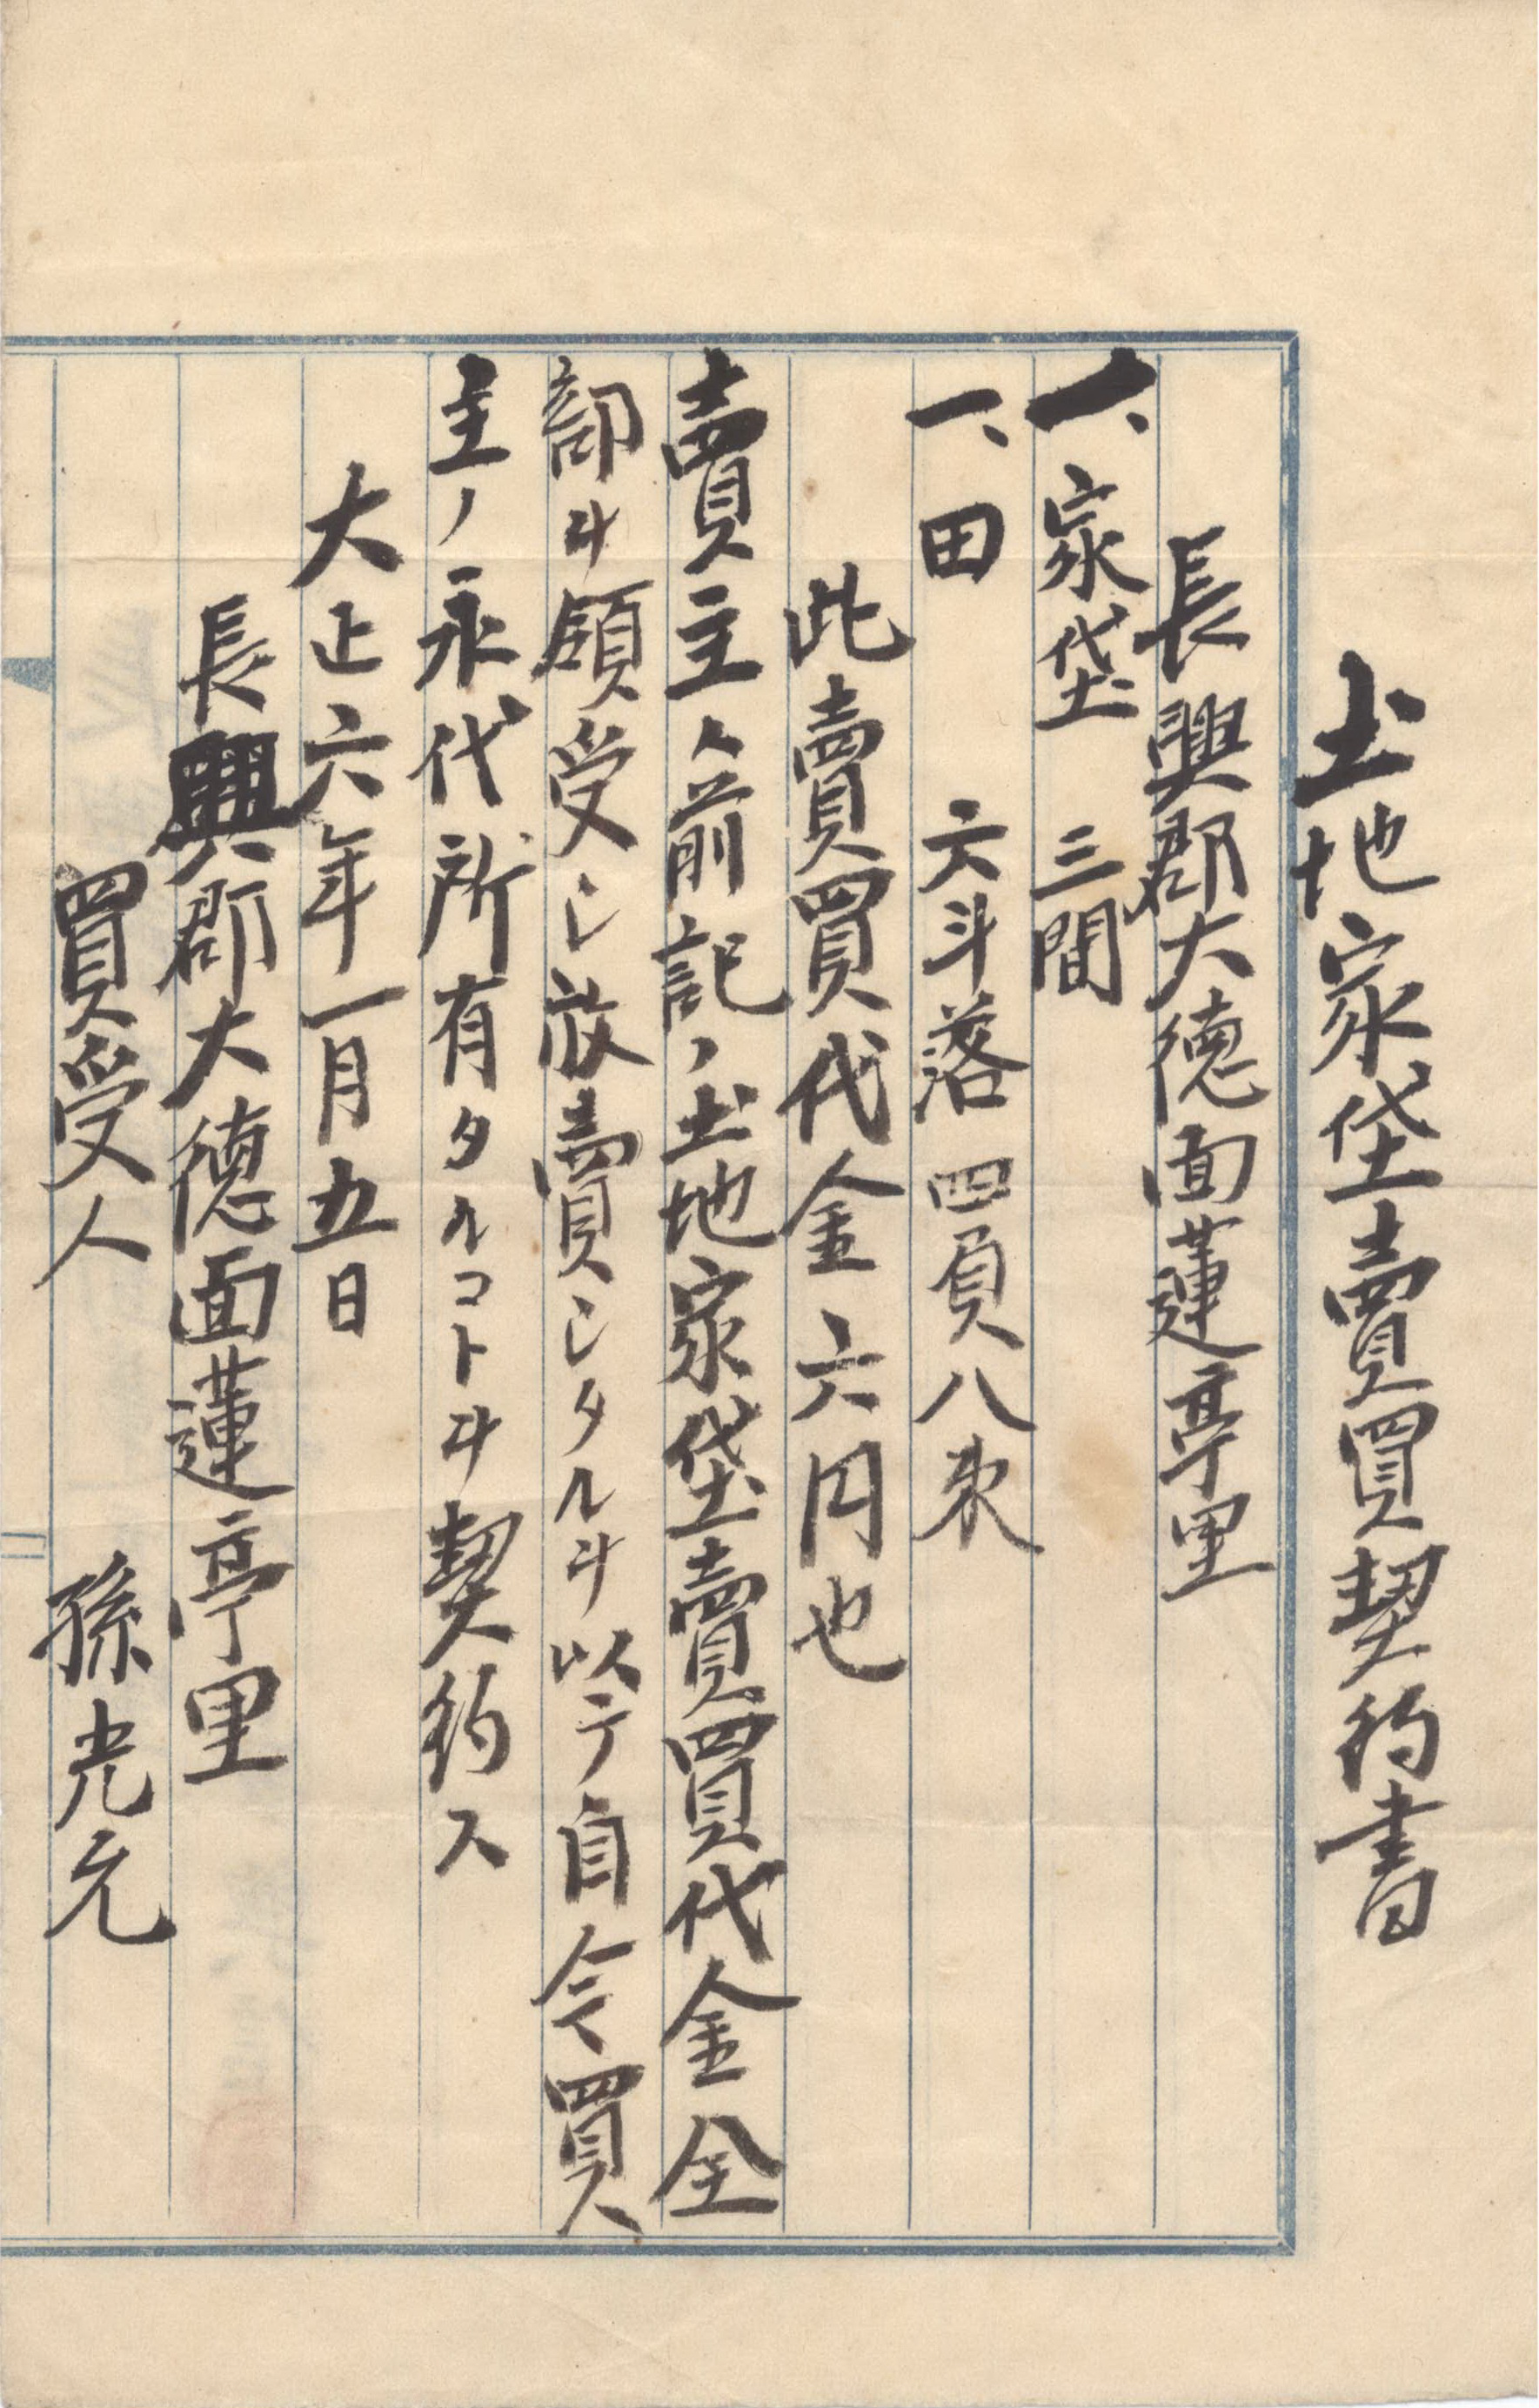 土地家垈賣買契約書
長興郡大德面蓮亭里
一、家垈 三間
一、田 六斗落 四負八束
此賣買代金六円也
賣主ハ前記ノ土地家垈賣買代金全
部ヲ領受シ放賣シタルヲ以テ自今買
主ノ永代所有タルコトヲ契約ス
大正六年一月五日
長興郡大德面蓮亭里
買受人 孫光允